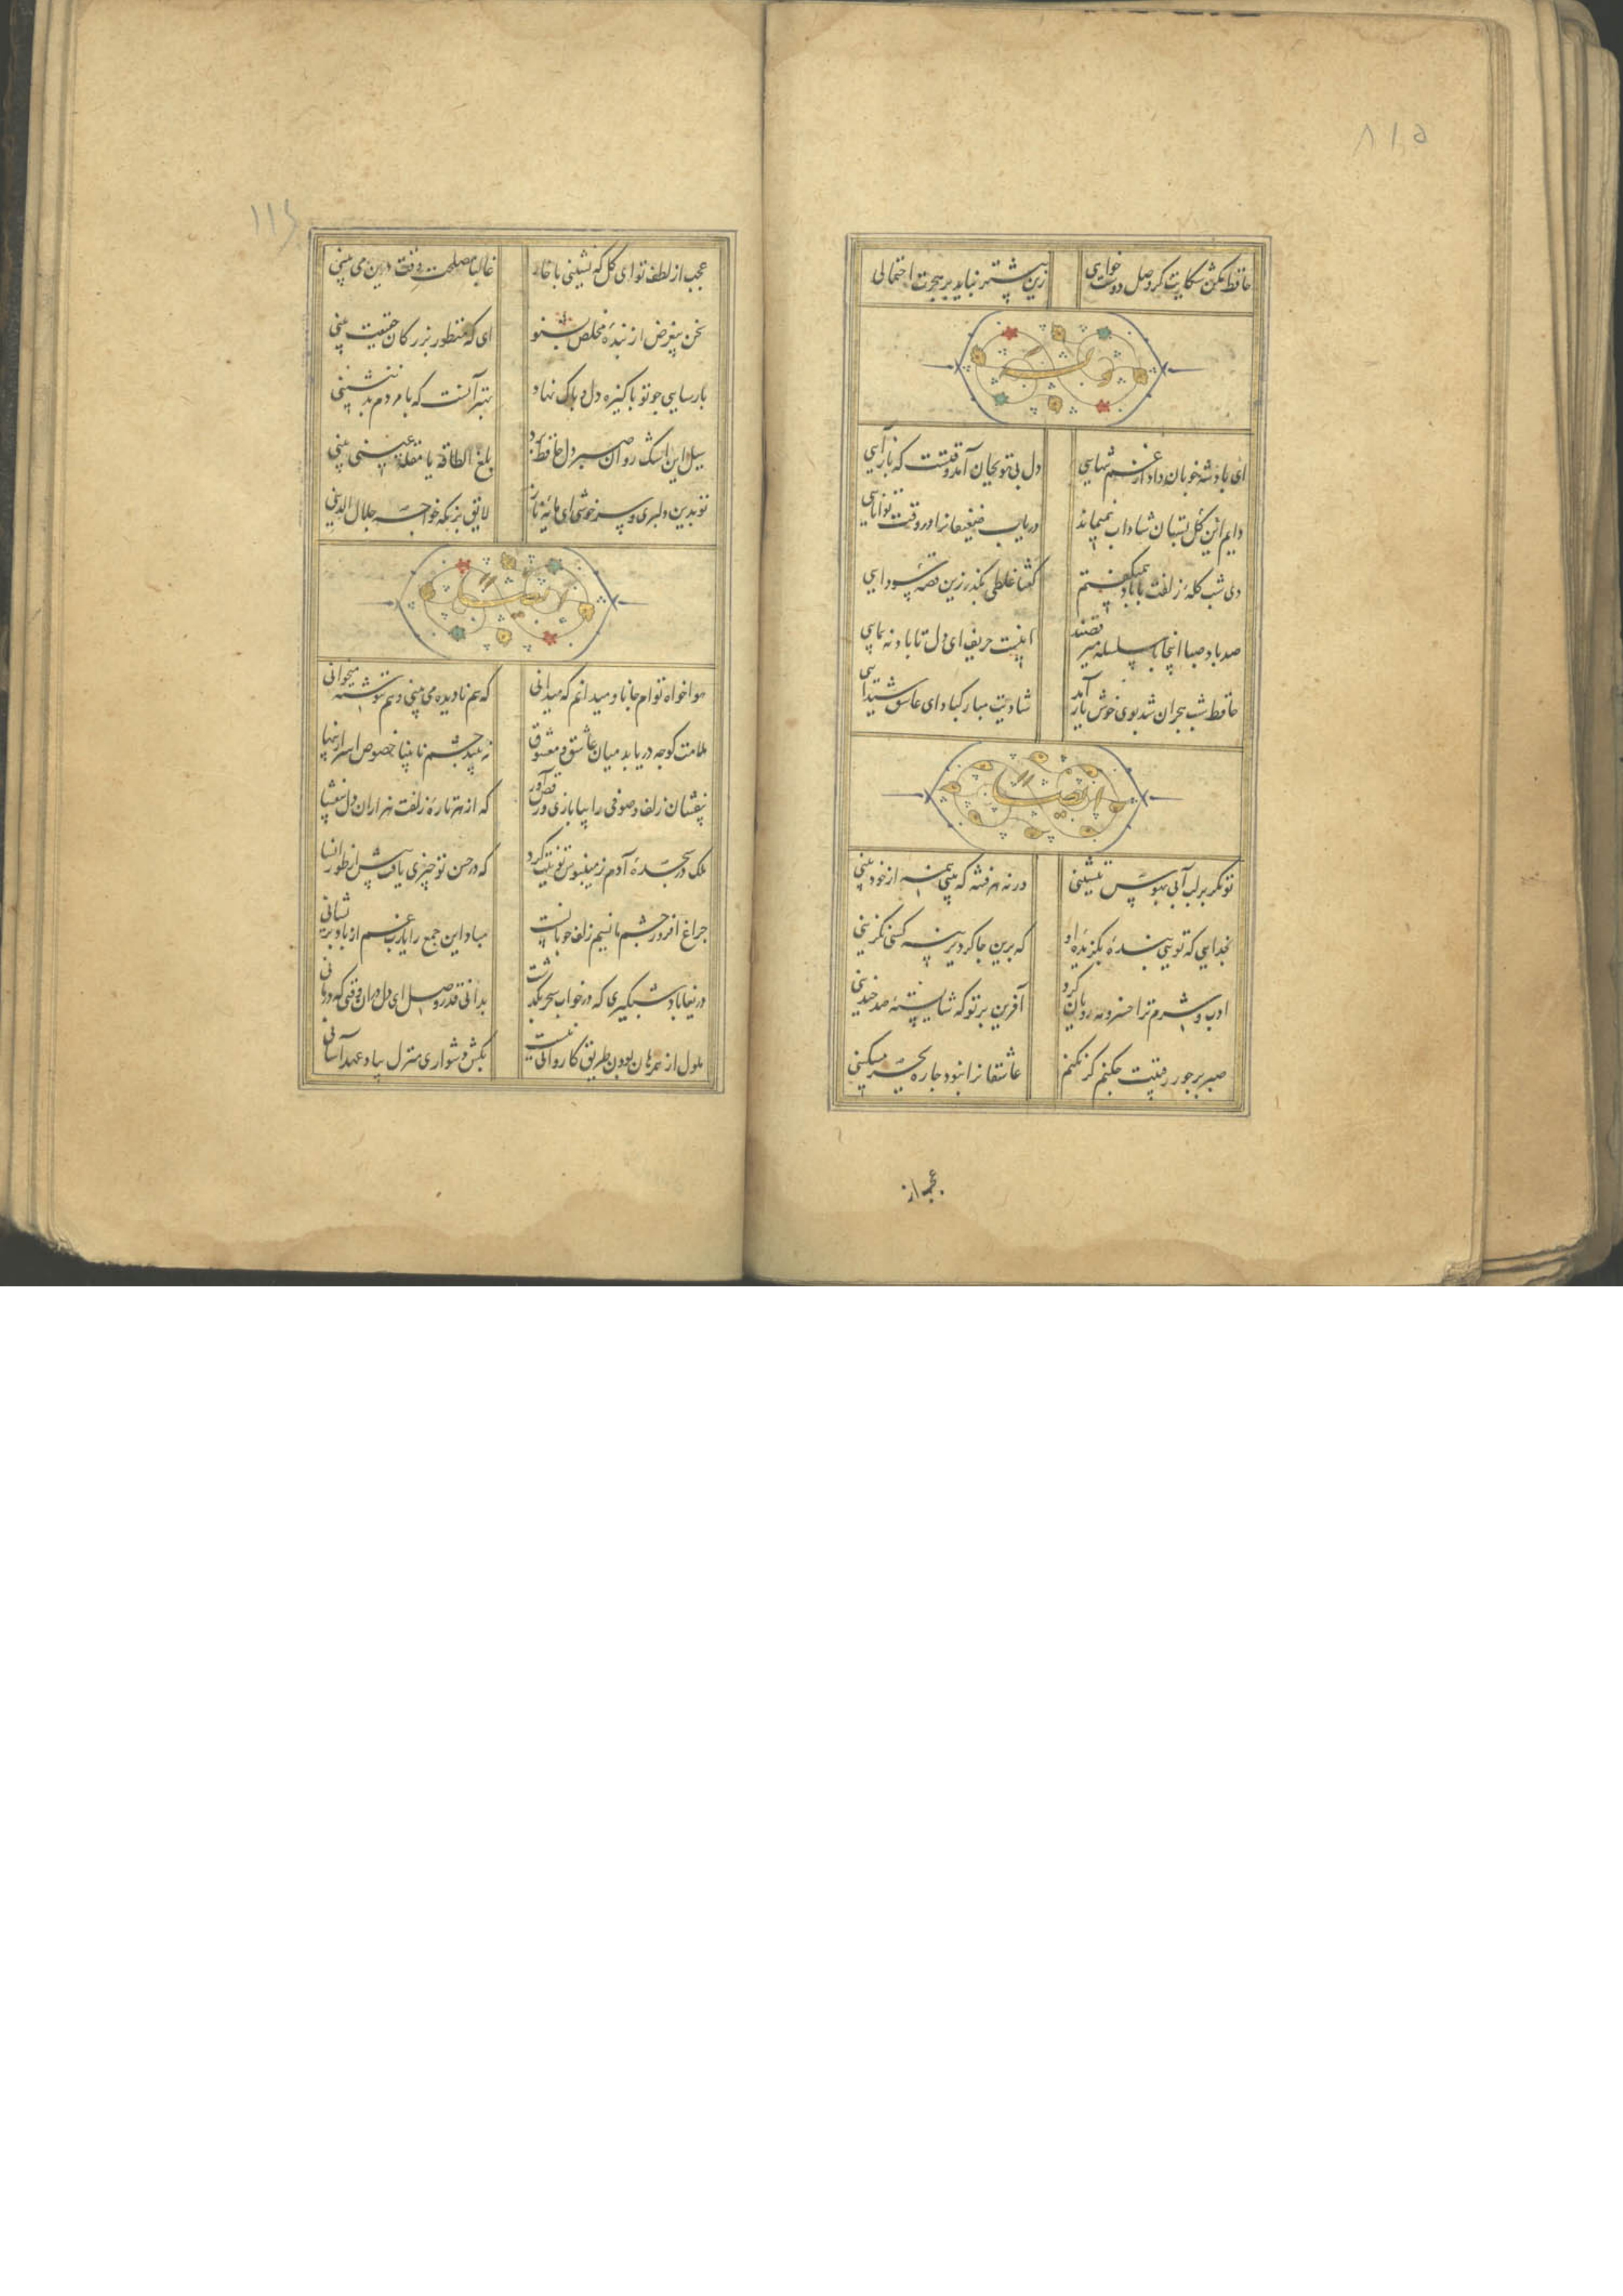 ۸۱۵
حافظ مکن شکایت گر وصل دوست خواهی زین بیشتر نباید بر هجرت احتمالی
ای پادشه خوبان داد از غم تنهایی دل بی تو بجان آمد وقتست که بازآیی
دایم گل این بستان شاداب نمیماند دریاب ضعیفانرا در وقت توانایی
دی شب کلهٔ زلفت با باد همیگفتم گفتا غلطی بگذر زین قصهٔ سودایی
صد باد صبا اینجا با سلسله میرقصند اینست حریف ای دل تا باد نه پیمایی
حافظ شب هجران شد بوی خوش یار آمد شادیت مبارکباد ای عاشق شیدایی
تو مگر بر لب آبی بهوس بنشینی ورنه هر فتنه که بینی همه از خود بینی
بخدایی که تویی بندهٔ بگزیدهٔ او که برین چاکر دیرینه کسی نگزینی
ادب و شرم ترا خسرو مه رویان کرد آفرین بر تو که شایستهٔ صد چندینی
صبر بر جور رقیبت چکنم گر نکنم عاشقانرا نبود چاره بجز مسکینی
عجب از
۱۱۶
عجب از لطف تو ای گل که نشینی با خار غالبا مصلحت وقت درین می بینی
سخن بیغرض از بندهٔ مخلص بشنو ای که منظور بزرگان حقیقت بینی
پارسایی چو تو پاکیزه دل و پاک نهاد بهتر آنست که با مردم بد ننشینی
سیل این اشک روان صبر دل حافظ برد بلغ الطاقة یا مقلة عینی بینی
تو بدین دلبری و سرخوشی ای مایهٔ ناز لایق بزمکه خواجه جلال الدینی
هواخواه توام جانا و میدانم که میدانی که هم نادیده می بینی و هم ننوشته میخوانی
ملامت گو چه دریابد میان عاشق و معشوق نه بیند چشم نابینا خصوص اسرار پنهانی
بیفشان زلف و صوفی را بپا بازی و رقص آور که از هر تارهٔ زلفت هزاران دل بیفشانی
ملک در سجدهٔ آدم زمینبوس تو نیت کرد که در حسن تو چیزی یافت بیش از طور انسانی
چراغ افروز چشم ما نسیم زلف خوبانست مباد این جمع را یارب غم از باد پریشانی
دریغا باد شبگیری که در خواب سحر بگذشت بدانی قدر وصل ای دل در آن وقتی که درمانی
ملول از همرهان بودن طریق کاروانی نیست بکش دشواری منزل بیاد عهد آسانی